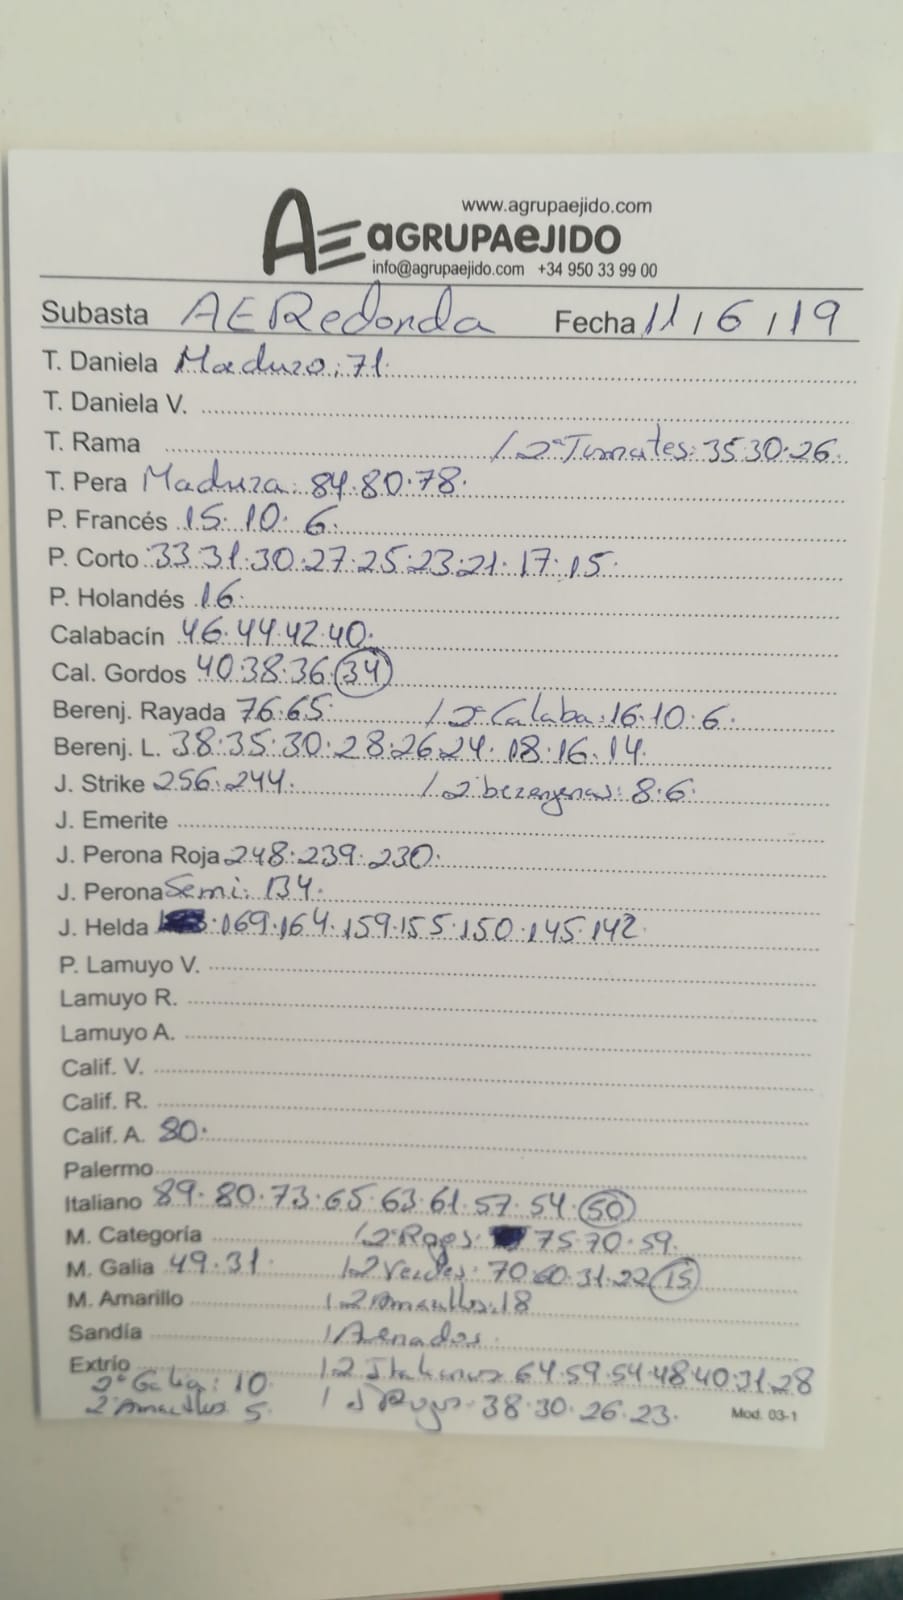 www.agrupaejido.com
AE AGRUPAEJIDO
info@agrupaejido.com +34 950 33 99 00
Subasta AE Redonda Fecha 11/6/19
T. Daniela Maduro: 71.
T. Daniela V.
T. Rama / 2ª Tomates: 35.30.26.
T. Pera Madura: 84.80.78.
P. Francés 15. 10. 6.
P. Corto 33.31.30.27.25.23.21.17.15.
P. Holandés 16.
Calabacín 46.44.42.40.
Cal. Gordos 40.38.36.34
Berenj. Rayada 76.65. / 2ª Calaba: 16.10.6.
Berenj. L. 38.35.30.28.26.24.18.16.14.
J. Strike 256.244. / 2 berenjenas: 8.6.
J. Emerite
J. Perona Roja 248.239.230.
J. Perona Semi: 134.
J. Helda 169.164.159.155.150.145.142.
P. Lamuyo V.
Lamuyo R.
Lamuyo A.
Calif. V.
Calif. R.
Calif. A. 80.
Palermo
Italiano 89.80.73.65.63.61.57.54.50
M. Categoría / 2ª Rojos: 75.70.59.
M. Galia 49.31. / 2 Verdes: 70.60.31.22.15
M. Amarillo / 2 Amarillos. 18
Sandía / Asnados.
Extrío / 2 Italianos 64.59.54.48.40.31.28
2ª Galia: 10. / Rojos. 38.30.26.23.
2 Amarillos 5. Mod. 03-1